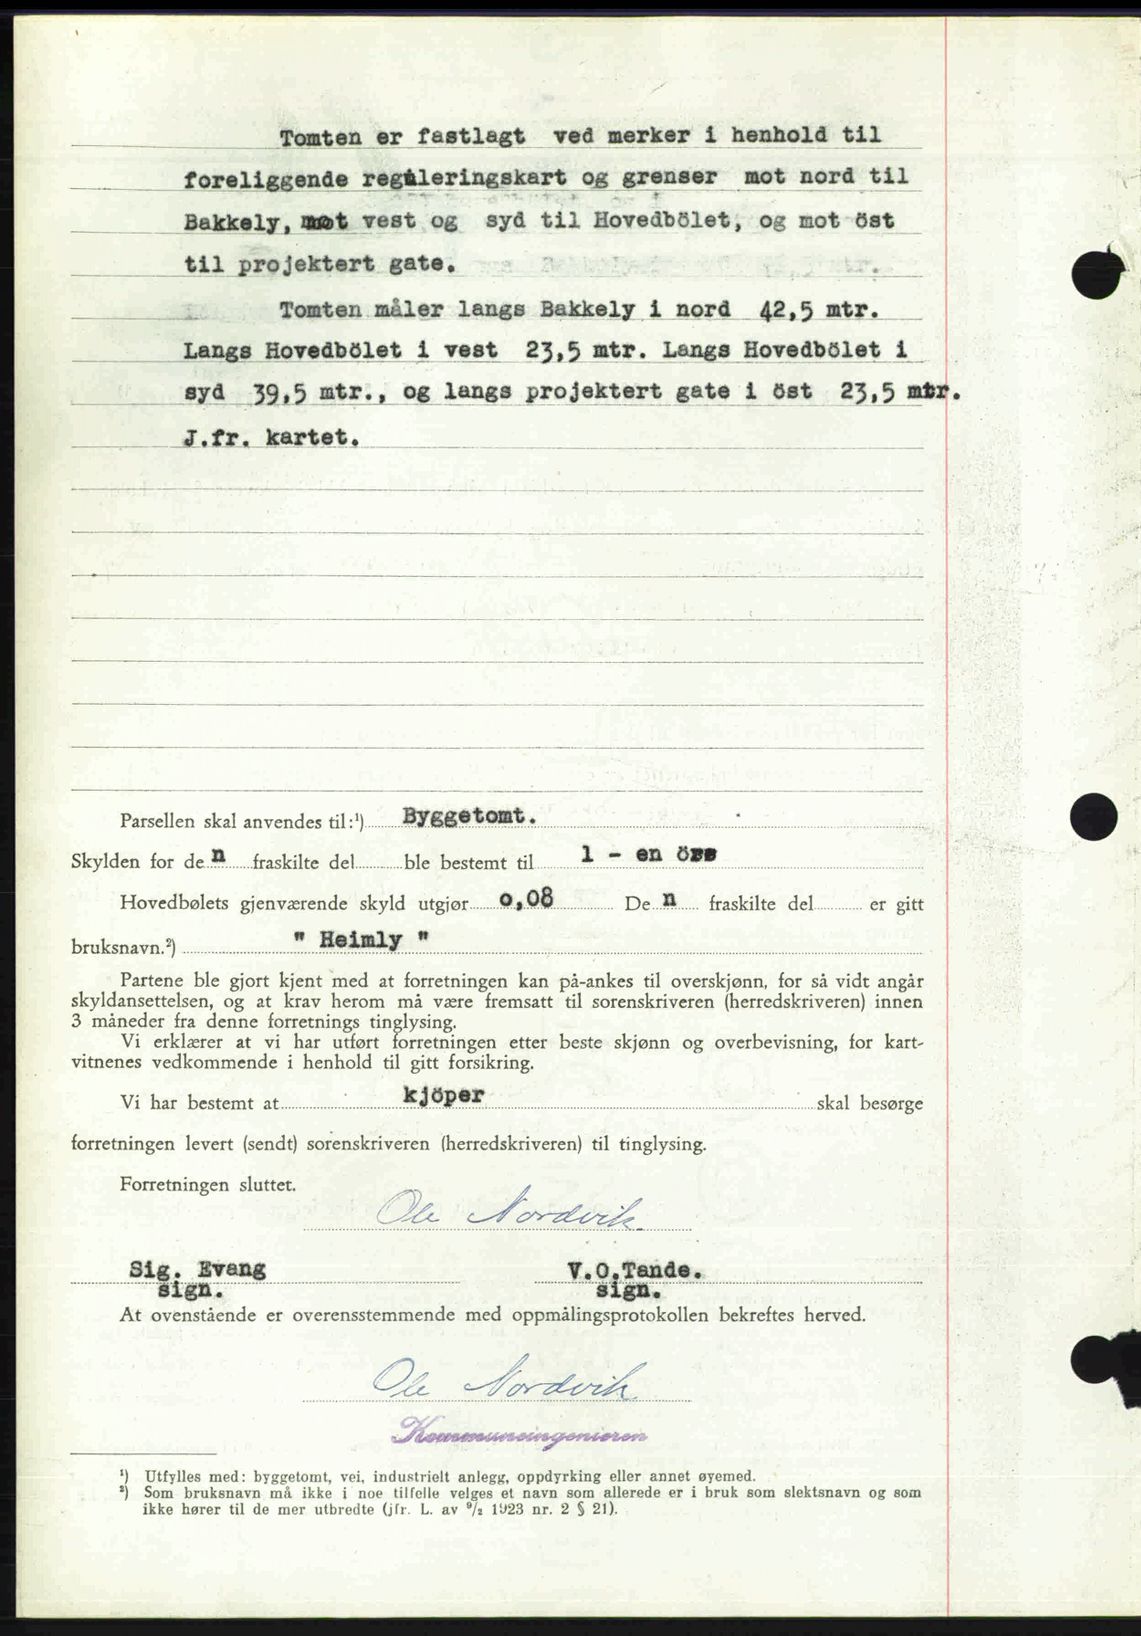 Tomten er fastlagt ved merker i henhold til
foreliggende reguleringskart og grenser mot nord til
Bakkely, mot vest og syd til Hovedbölet, og mot öst
til projektert gate.
Tomten måler langs Bakkely i nord 42,5 mtr.
Langs Hovedbölet i vest 23,5 mtr. Langs Hovedbölet i
syd 39,5 mtr., og langs projektert gate i öst 23,5 mtr.
J.fr. kartet.
Parsellen skal anvendes til:¹) Byggetomt.
Skylden for den fraskilte del ble bestemt til 1 - en öre
Hovedbølets gjenværende skyld utgjør 0,08 Den fraskilte del er gitt
bruksnavn.²) " Heimly "
Partene ble gjort kjent med at forretningen kan på-ankes til overskjønn, for så vidt angår
skyldansettelsen, og at krav herom må være fremsatt til sorenskriveren (herredskriveren) innen
3 måneder fra denne forretnings tinglysing.
Vi erklærer at vi har utført forretningen etter beste skjønn og overbevisning, for kart-
vitnenes vedkommende i henhold til gitt forsikring.
Vi har bestemt at kjöper skal besørge
forretningen levert (sendt) sorenskriveren (herredskriveren) til tinglysing.
Forretningen sluttet.
Ole Nordvik
Sig. Evang V.O.Tande.
sign. sign.
At ovenstående er overensstemmende med oppmålingsprotokollen bekreftes herved.
Ole Nordvik
Kommuneingeniøren
¹) Utfylles med: byggetomt, vei, industrielt anlegg, oppdyrking eller annet øyemed.
²) Som bruksnavn må ikke i noe tilfelle velges et navn som allerede er i bruk som slektsnavn og som
ikke hører til de mer utbredte (jfr. L. av ⁹/₂ 1923 nr. 2 § 21).